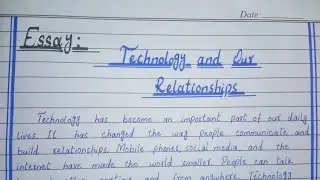 Date:
Essay:
Technology and Our
Relationships
Technology has become an important part of our daily
lives. It has changed the way people communicate and
build relationships. Mobile phones, social media, and the
internet have made the world smaller. People can talk
and from anywhere. Technology